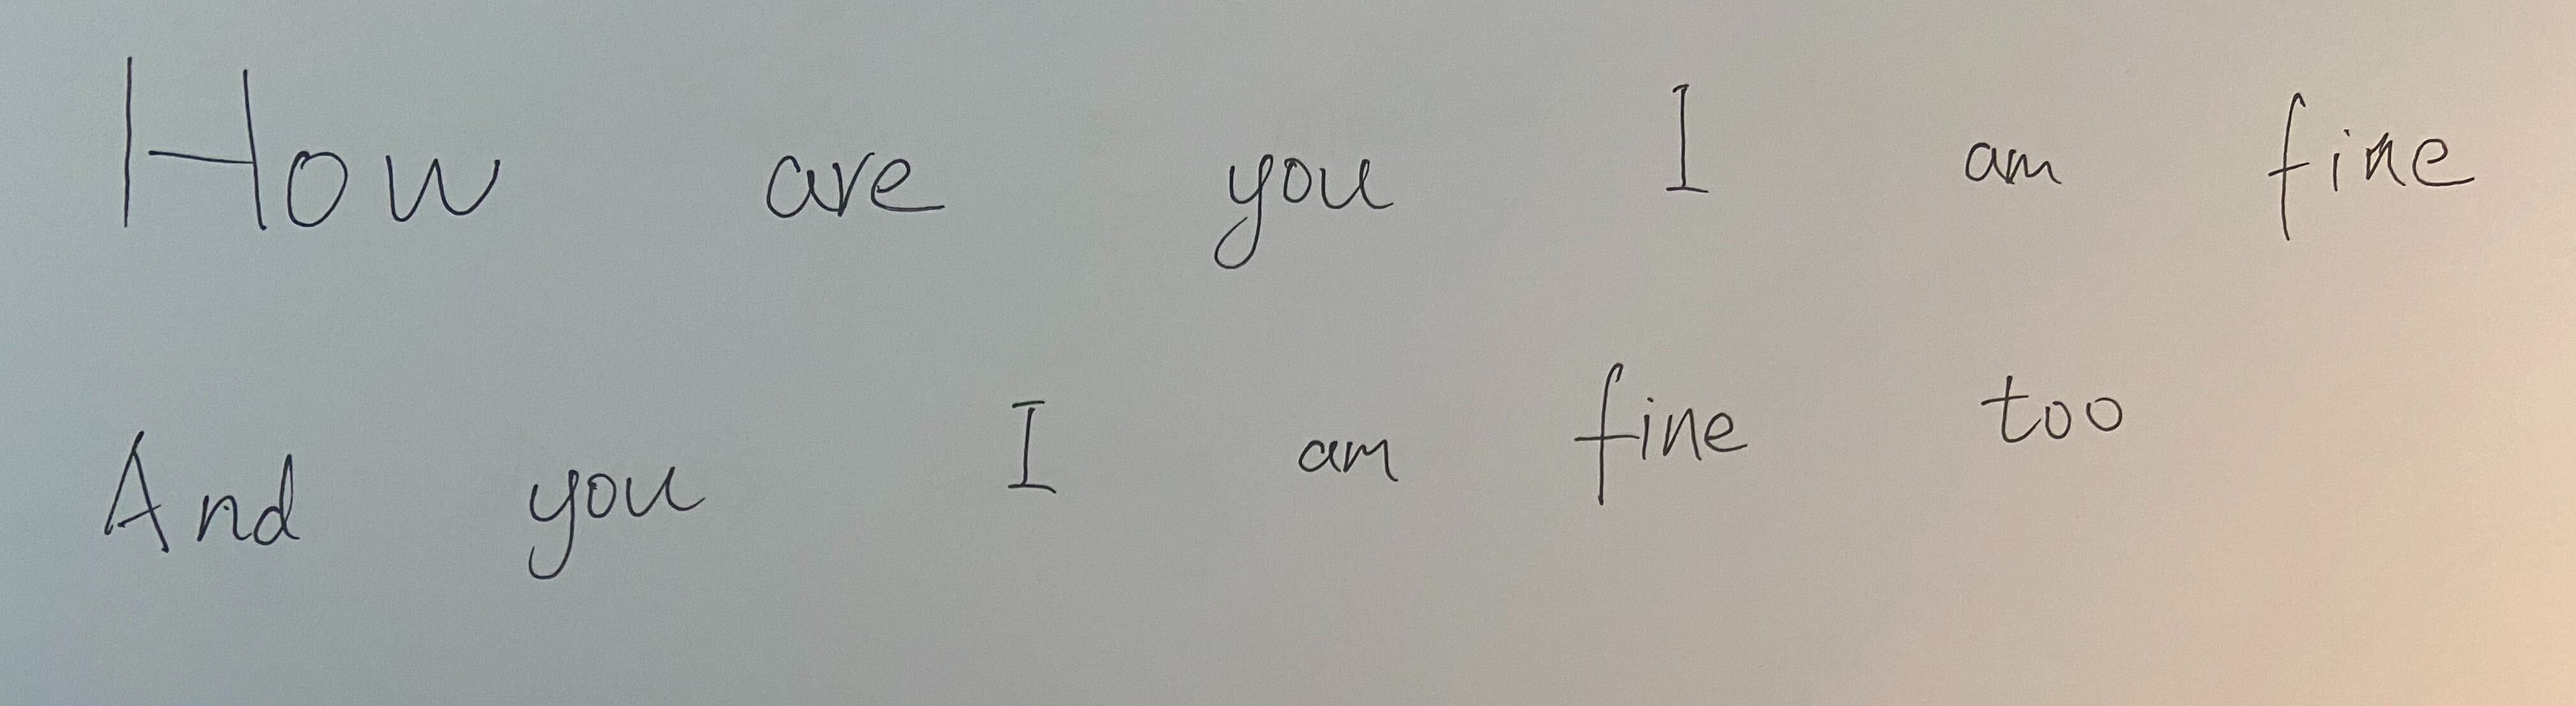 How are you I am fine
And you I am fine too